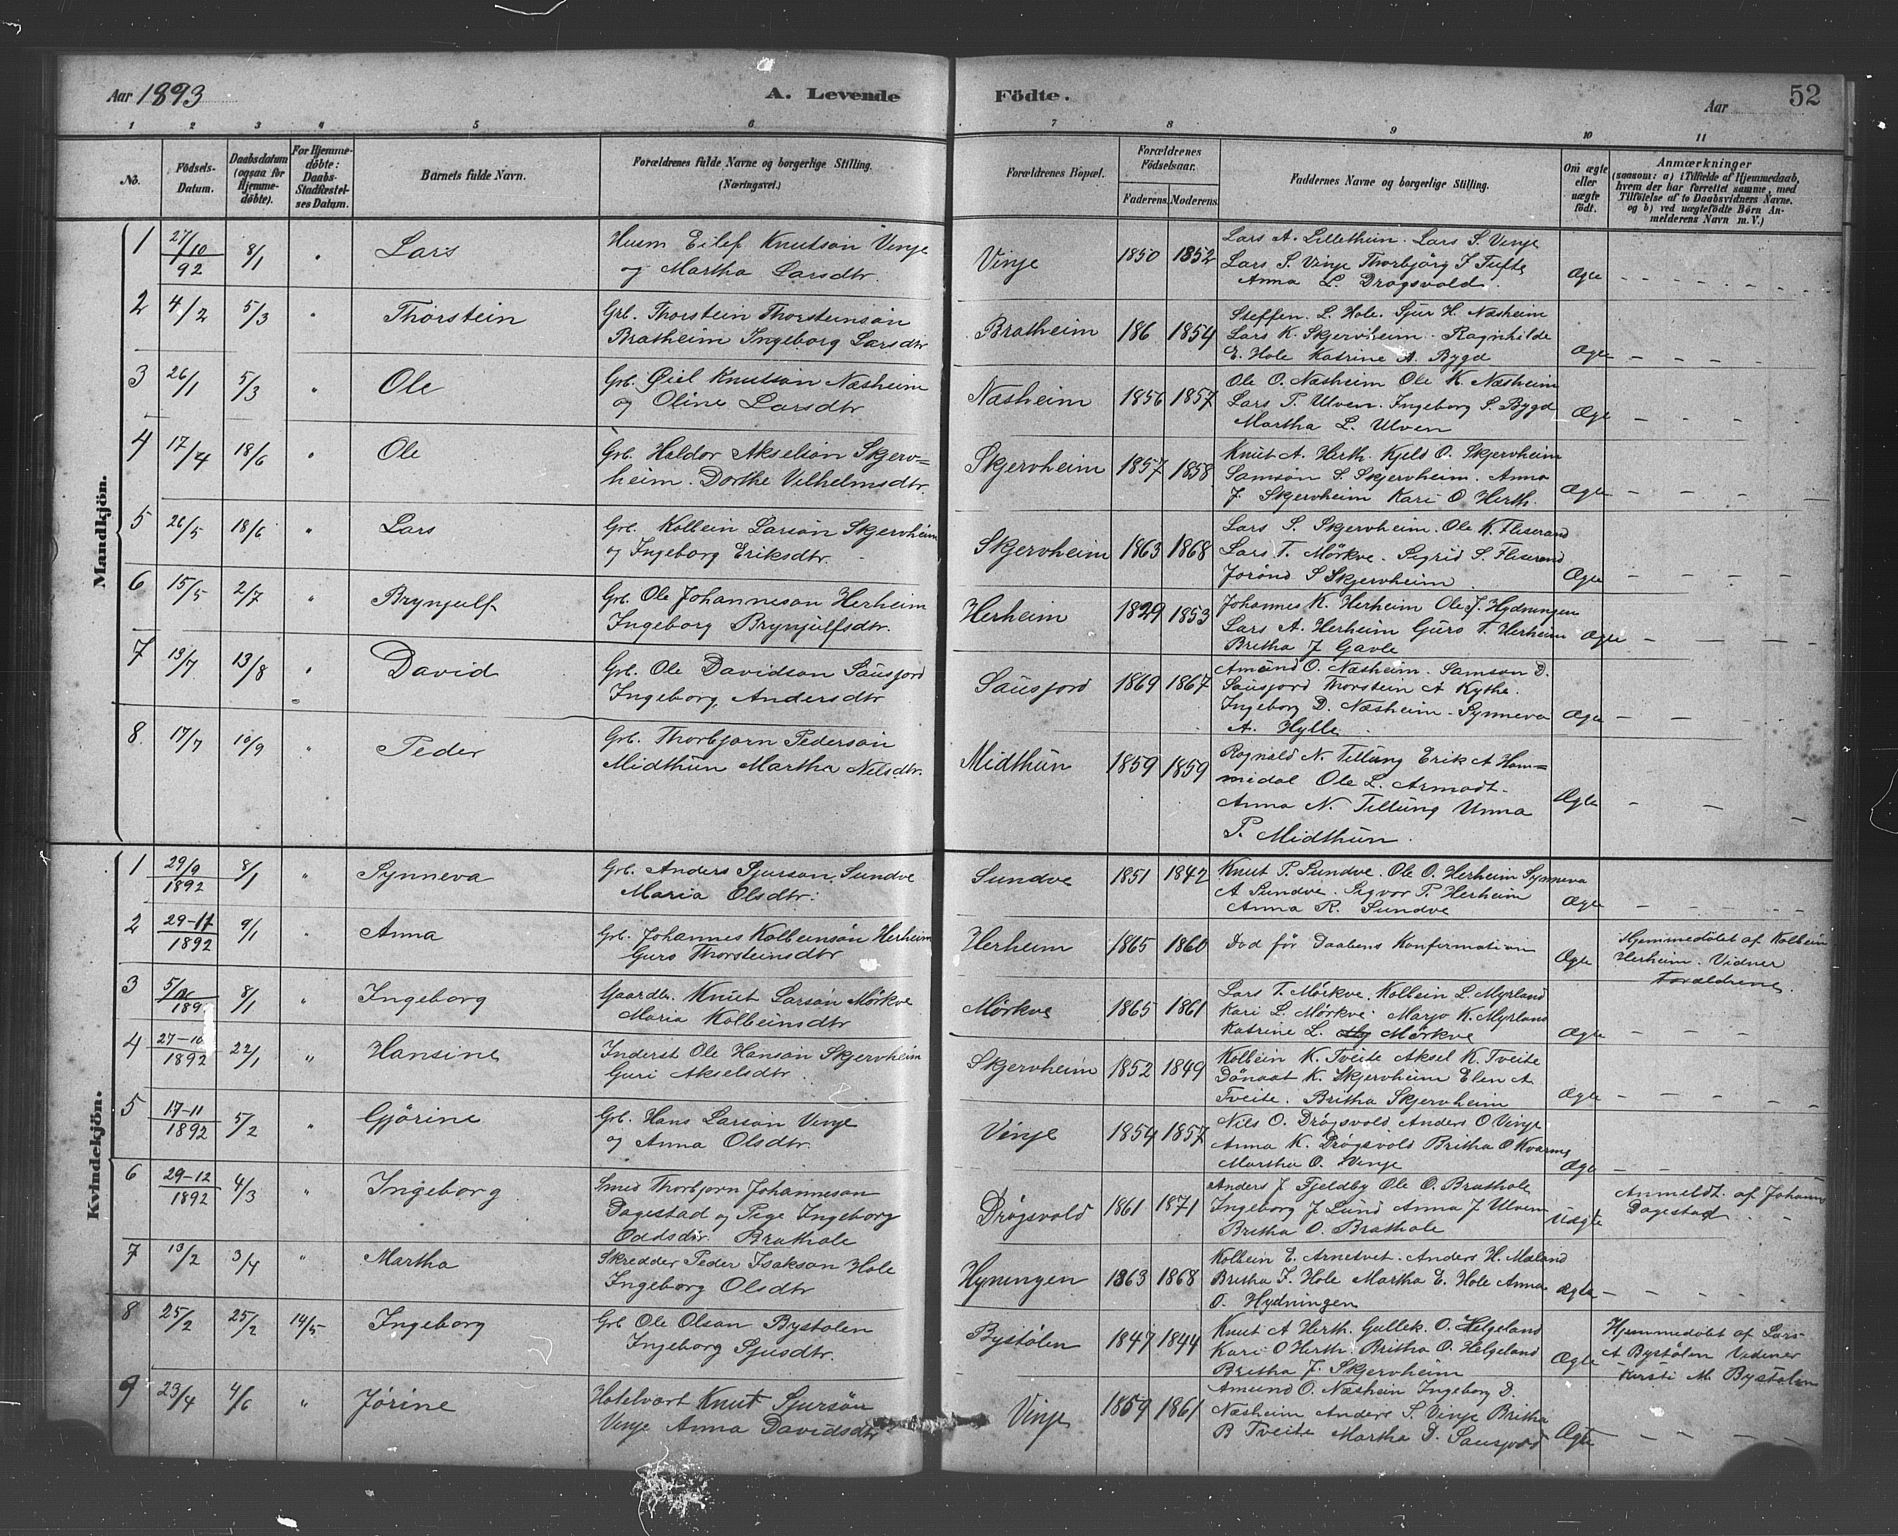 Aar 1893 A. Levende Födte. Aar 52
1 2 3 4 5 6 7 8 9 10 11
No. Födsels-Datum. Daabsdatum (ogsaa for Hjemmedöbte). For Hjemmedöbte: Daabs-Stadfæstelses Datum. Barnets fulde Navn. Forældrenes fulde Navne og borgerlige Stilling. (Næringsvei.) Forældrenes Bopæl. Forældrenes Födselsaar. Faderens. Moderens. Faddernes Navne og borgerlige Stilling. Om ægte eller uægte födt. Anmærkninger (saasom: a) i Tilfælde af Hjemmedaab, hvem der har forrettet samme, med Tilföielse af to Daabsvidners Navne. og b) ved uægtefödte Börn Anmelderens Navn m. V.)
Mandkjön.
1 27/10 92 8/1 " Lars Husm Eilef Knutson Vinje
og Martha Larsdtr. Vinje 1850 1852 Lars A. Lillethun. Lars S. Vinje
Lars S. Vinje Thorbjörg I Tufte
Anna L. Drøgsvold. Ægte
2 4/2 5/3 " Thorstein Grb. Thorstein Thorsteinson
Bratheim Ingeborg Larsdtr Bratheim 186 1854 Steffen. L. Hole. Sjur H. Næsheim
Lars K. Skjervheim. Ragnhilde
E. Hole Katrine A. Bygd Ægte
3 26/1 5/3 " Ole Grb. Eiel Knutson Næsheim
og Oline Larsdtr Næsheim 1856 1857 Ole O. Næsheim Ole K. Næsheim
Lars T. Ulven. Ingeborg S. Bygd
Martha L. Ulven Ægte
4 17/4 18/6 " Ole Grb. Haldor Akselson Skjerv=
heim. Dorthe Vilhelmsdtr. Skjervheim 1857 1858 Knut A. Herth. Kjeld O. Skjervheim
Samson S. Skjervheim. Anna
J. Skjervheim Kari O Herth. Ægte
5 26/5 18/6 " Lars Grb. Kolbein Larson Skjervheim
og Ingeborg Eriksdtr. Skjervheim 1863 1868 Lars S. Skjervheim. Ole K. Fliserand
Lars T. Mörkve. Sigrid S. Fliserand
Jorönd S Skjervheim Ægte
6 15/5 2/7 " Brynjulf Grb. Ole Johanneson Herheim
Ingeborg Brynjulfsdtr. Herheim 1829 1853 Johannes K. Herheim Ole J. Hydningen
Lars A. Herheim Guro T. Herheim
Britha J Gavle Ægte
7 13/7 13/8 " David Grb. Ole Davidson Sausjord
Ingeborg Andersdtr Sausjord 1869 1867 Amund O. Næsheim. Samson D.
Sausjord Thorstein A Kythe.
Ingeborg D. Næsheim. Synneva
A. Hylle. Ægte
8. 17/7 10/9 " Peder Grb. Thorbjorn Pederson
Midthun Martha Nilsdtr. Midthun 1859 1859 Rognald N. Tillung Erik A Ham=
medal Ole L. Armodt.
Anna N. Tillung Unna
P. Midthun. Ægte
Kvindekjön.
1 29/9 1892 8/1 " Synneva Grb. Anders Sjurson. Sundve
Maria Olsdtr. Sundve 1851 1842 Knut P. Sundve. Ole O. Herheim Synneva
A Sundve. Sigvor P. Herheim
Anna R. Sundve Ægte
2 29-17 1892 9/1 " Anna Grb. Johannes Kolbeinson Herheim
Guro Thorsteinsdtr Herheim 1865 1860 Död för Daabens Konfirmation Ægte Hjemmedöbt af Kolbein
Herheim. Vidner
Forældrene.
3 189 8/1 " Ingeborg Gaardbr. Knut Larson Mörkve
Maria Kolbeinsdtr Mörkve 1865 1861 Lars T. Mörkve. Kolbein L. Myrland
Kari L. Mörkve. Marjo K. Myrland
Katrine L. Mörkve Ægte
4 27-10 1892 22/1 " Hansine Inderst Ole Hanson Skjervheim
Guri Akselsdtr. Skjervheim 1852 1849 Kolbein K. Tveite Aksel K. Tveite
Dönaat K. Skjervheim Elen A.
Tveite. Britha Skjervheim Ægte
5 17-11 1892 5/2 " Gjörine Grb. Hans Larson Vinje
og Anna Olsdtr. Vinje 1854 1857 Nils O. Drøgsvold. Anders O Vinje
Anna K. Drøgsvold Britha O Kvarme
Martha O. Vinje Ægte
6 29-12 1892 4/3 " Ingeborg Smed Thorbjorn Johanneson
Dagestad og Pige Ingeborg
Oddsdtr. Brathole Drøgsvold 1861 1871 Anders J. Fjeldby Ole O. Brathole
Ingeborg J Lund Anna J. Ulven
Britha O. Brathole Uægte Anmeldt. af Johannes
Dagestad
7 13/2 3/4 " Martha Skredder Peder Isakson Hole
Ingeborg Olsdtr Hyningen 1863 1868 Kolbein E. Arnetvet. Anders H. Mæland
Britha I. Hole Martha E. Hole Anna
O. Hydningen ægte
8 25/2 25/2 14/5 Ingeborg Grb Ole Olson Bystolen
Ingeborg Sjusdtr. Bystölen 1847 1844 Knut A Herth. Gullek. O. Helgeland
Kari O Herth. Britha O. Helgeland
Britha J. Skjervheim Ægte Hjemmedöbt af Lars
A Bystölen Vidner
Kirsti M. Bystölen
9 23/4 4/6 " Jörine Hotelvært Knut Sjursön
Vinje Anna Davidsdtr Vinje 1859 1861 Amund O. Næsheim Ingeborg D.
Næsheim Anders S. Vinje Britha
B Tveite Martha D. Sausjord Ægte